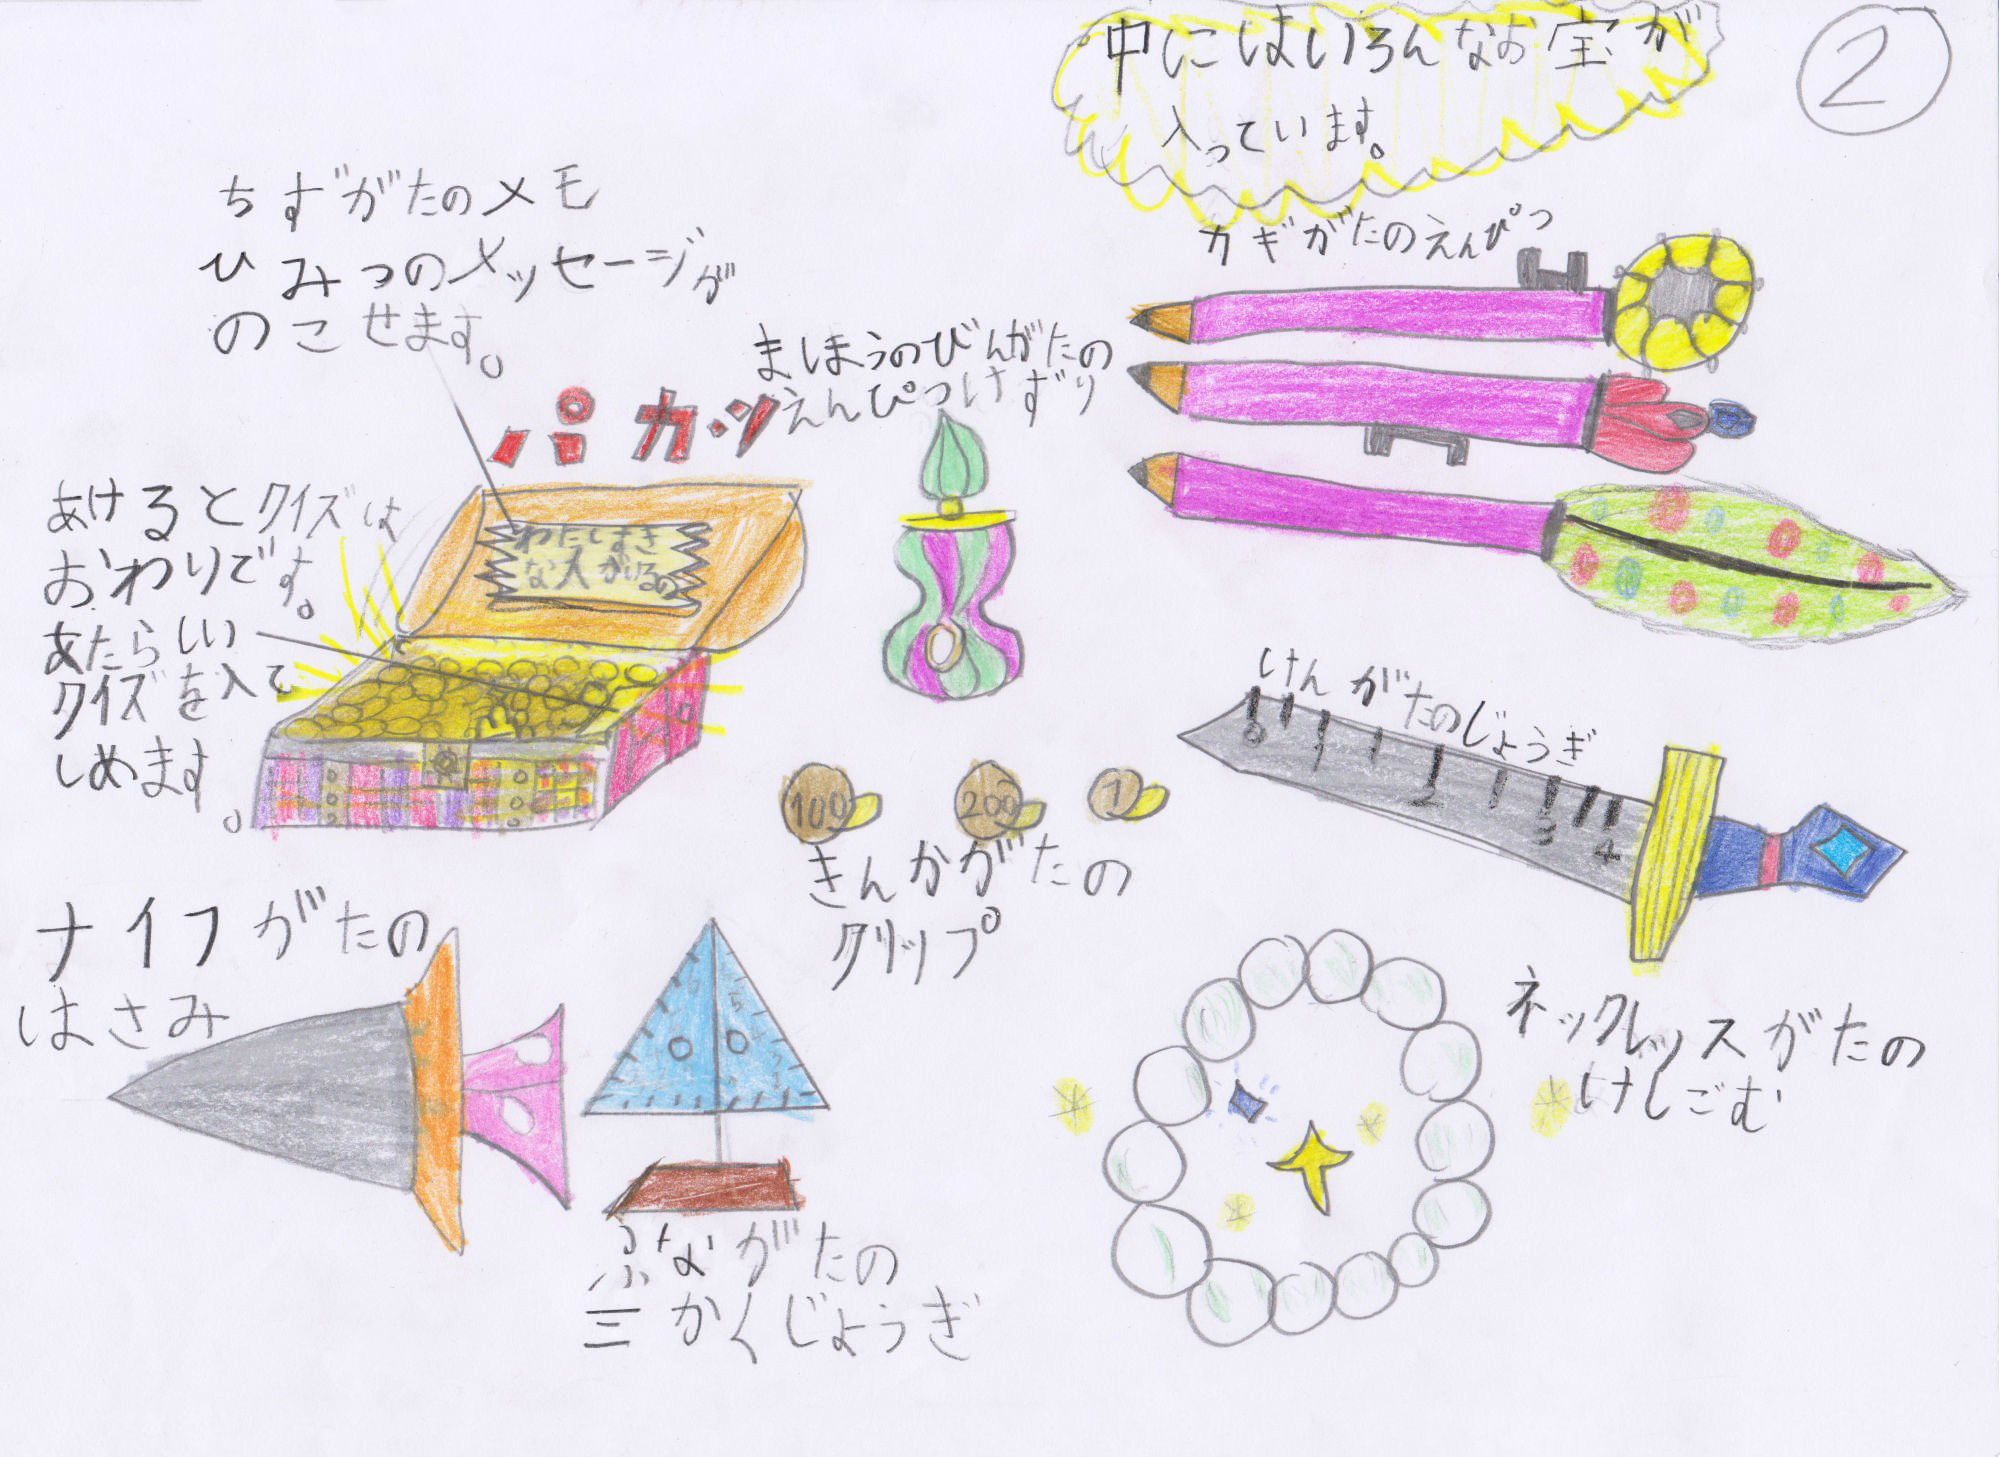 中にはいろんなお宝が
入っています。
2
ちずがたのメモ
ひみつのメッセージが
のこせます。
カギがたのえんぴつ
まほうのびんがたの
えんぴつけずり
パカッ
あけるとクイズは
おわりです。
あたらしい
クイズを入て
しめます。
わたしはき
な人がいるの
けんがたのじょうぎ
0 1 2 3 4
100 200 1
きんかがたの
クリップ
ナイフがたの
はさみ
ふながたの
三かくじょうぎ
ネックレッスがたの
けしごむ